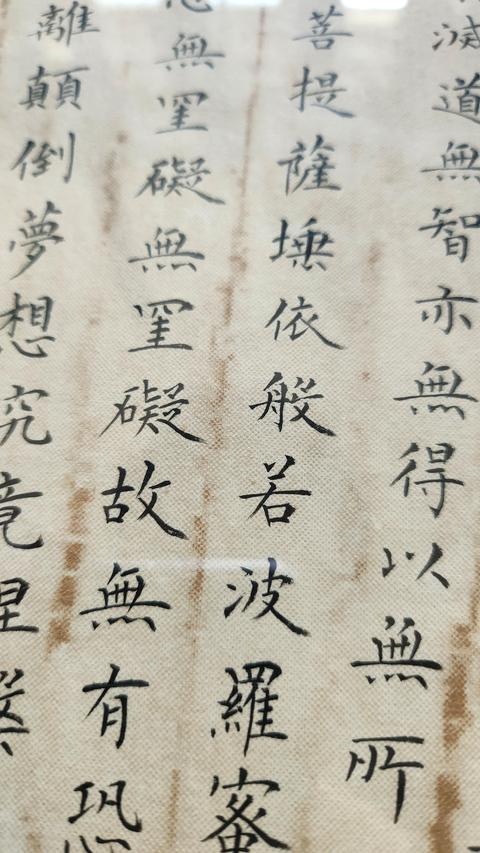 滅道無智亦無得以無所
菩提薩埵依般若波羅蜜
無罣礙無罣礙故無有恐
離顛倒夢想究竟涅槃